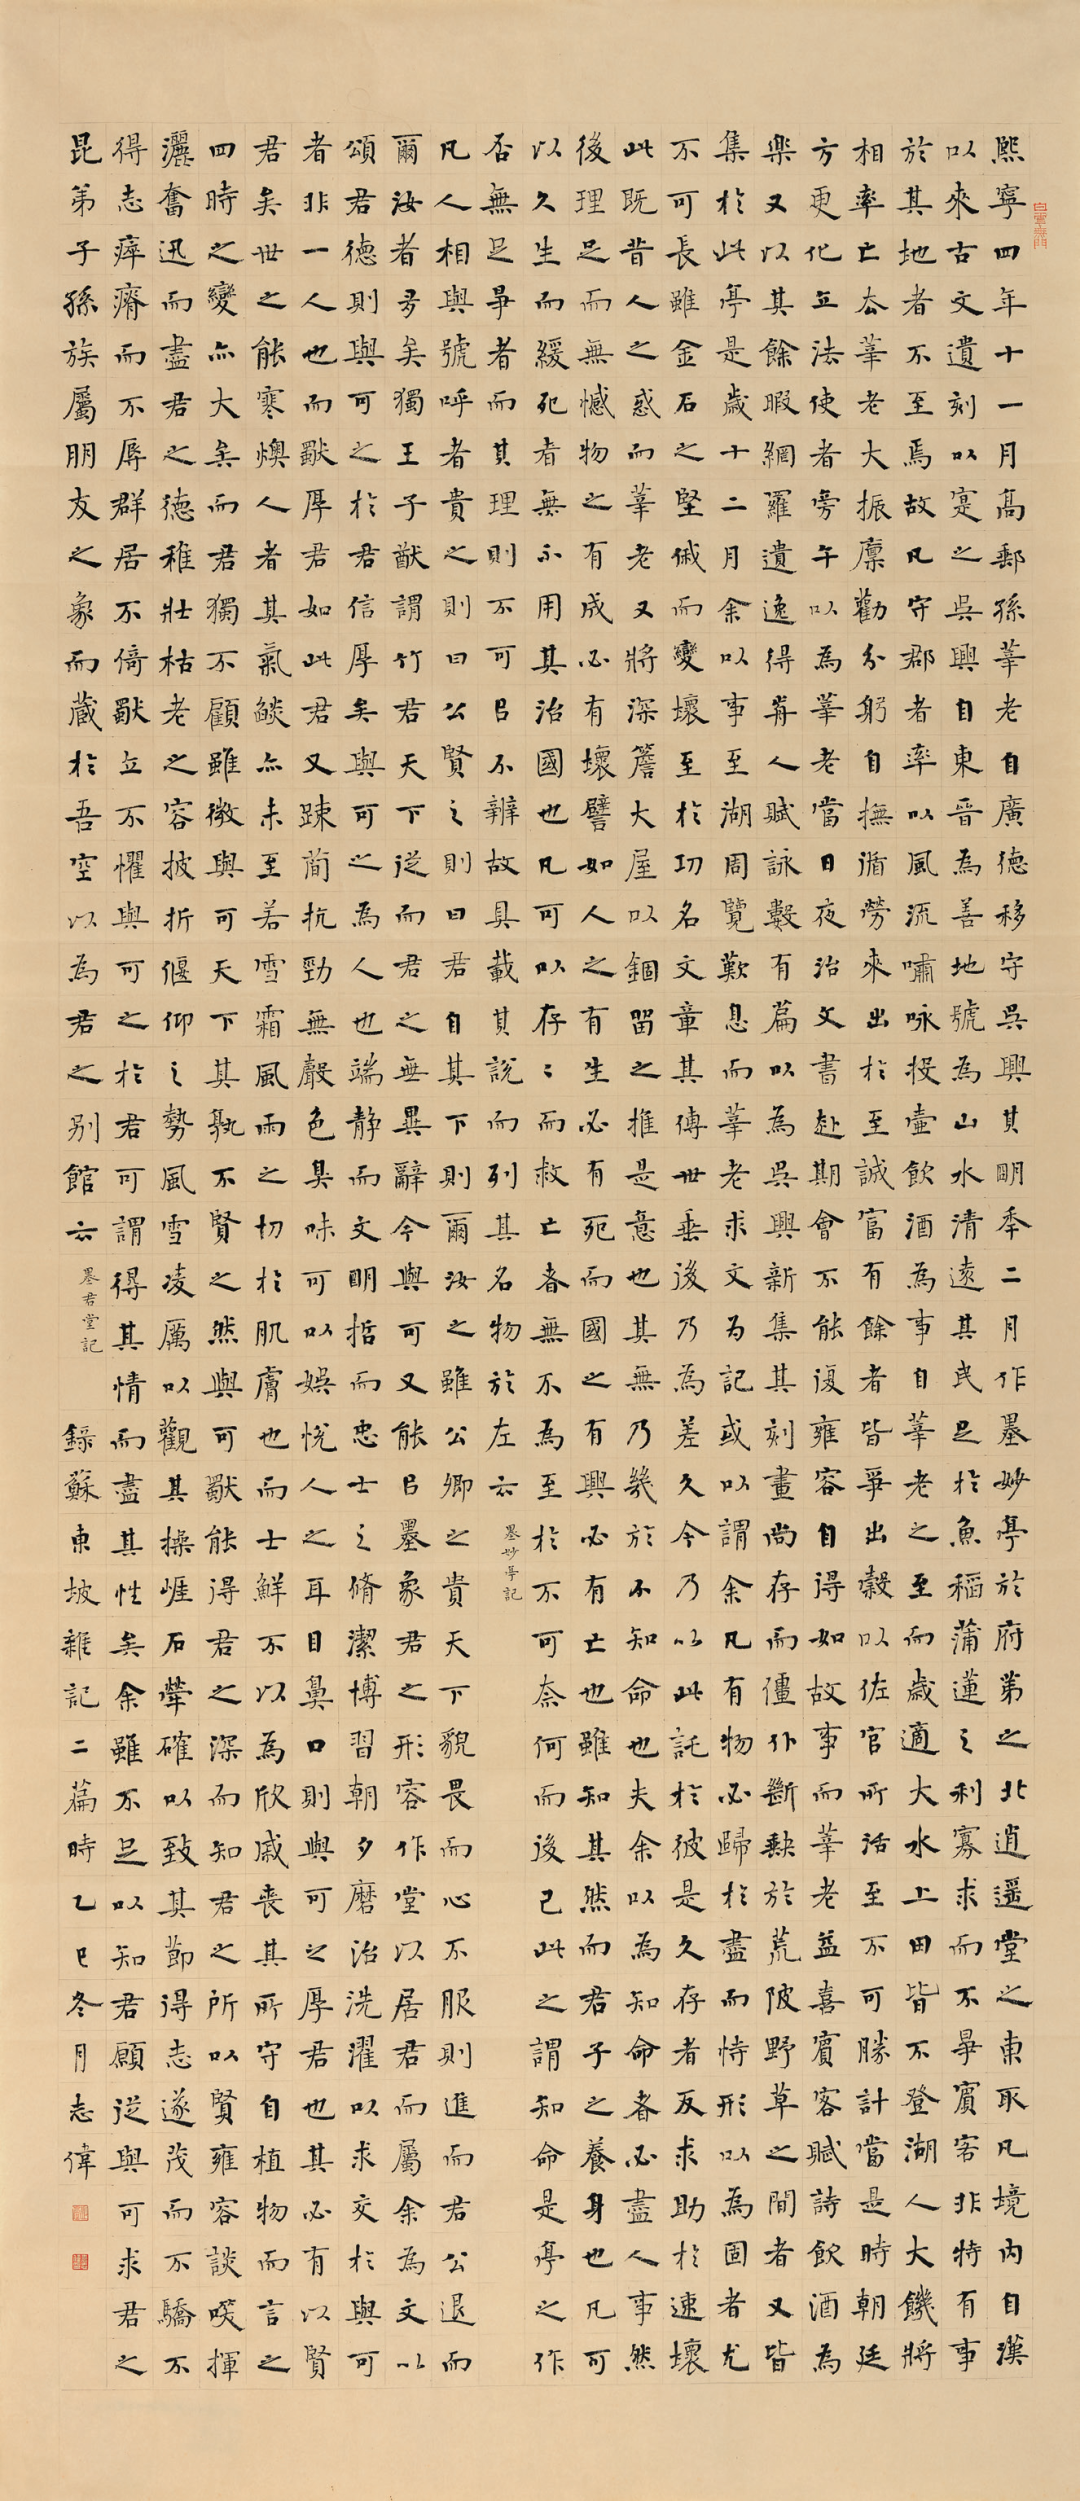 熙寧四年十一月高郵孫莘老自廣德移守吳興其明年二月作墨妙亭於府第之北逍遥堂之東取凡境內自漢
以來古文遺刻以寔之吳興自東晉為善地號為山水清遠其民足於魚稻蒲蓮之利寡求而不畢賓客非特有事
於其地者不至焉故凡守郡者率以風流嘯咏投壷飲酒為事自莘老之至而歲適大水上田皆不登湖人大饑將
相率亡去莘老大振廩勸分躬自撫循勞來出於至誠富有餘者皆爭出穀以佐官所活至不可勝計當是時朝廷
方更化立法使者旁午以為莘老當日夜治文書赴期會不能復雍容自得如故事而莘老益喜賓客賦詩飲酒為
樂又以其餘暇網羅遺逸得前人賦詠數百篇以為吳興新集其刻畫尚存而僵仆斷缺於荒陂野草之間者又皆
集於此亭是歲十二月余以事至湖周覽歎息而莘老求文為記或以謂余凡有物必歸於盡而恃形以為固者尤
不可長雖金石之堅俄而變壞至於功名文章其傳世垂後乃為差久今乃以此託於彼是久存者反求助於速壞
此既昔人之惑而莘老又將深簷大屋以錮留之推是意也其無乃幾於不知命也夫余以為知命者必盡人事然
後理足而無憾物之有成必有壞譬如人之有生必有死而國之有興必有亡也雖知其然而君子之養身也凡可
以久生而緩死者無不用其治國也凡可以存〻而救亡者無不為至於不可奈何而後已此之謂知命是亭之作
否無足爭者而其理則不可㠯不辨故具載其說而列其名物於左云 墨妙亭記
凡人相與號呼者貴之則曰公賢之則曰君自其下則爾汝之雖公卿之貴天下貌畏而心不服則進而君公退而
爾汝者多矣獨王子猷謂竹君天下從而君之無異辭今與可又能㠯墨象君之形容作堂以居君而屬余為文以
頌君德則與可之於君信厚矣與可之為人也端靜而文明哲而忠士之脩潔博習朝夕磨治洗濯以求交於與可
者非一人也而獸厚君如此君又疎簡抗勁無聲色臭味可以娛悅人之耳目鼻口則與可之厚君也其必有以賢
君矣世之能寒燠人者其氣燄亦未至若雪霜風雨之切於肌膚也而士鮮不以為欣戚喪其所守自植物而言之
四時之變亦大矣而君獨不顧雖微與可天下其孰不賢之然與可獸能得君之深而知君之所以賢雍容談笑揮
灑奮迅而盡君之德稚壯枯老之容披折偃仰之勢風雪凌厲以觀其操崖石犖确以致其節得志遂茂而不驕不
得志瘁瘠而不辱群居不倚獸立不懼與可之於君可謂得其情而盡其性矣余雖不足以知君願從與可求君之
昆弟子孫族屬朋友之象而藏於吾室以為君之別館云 墨君堂記 錄蘇東坡雜記二篇時乙巳冬月志偉